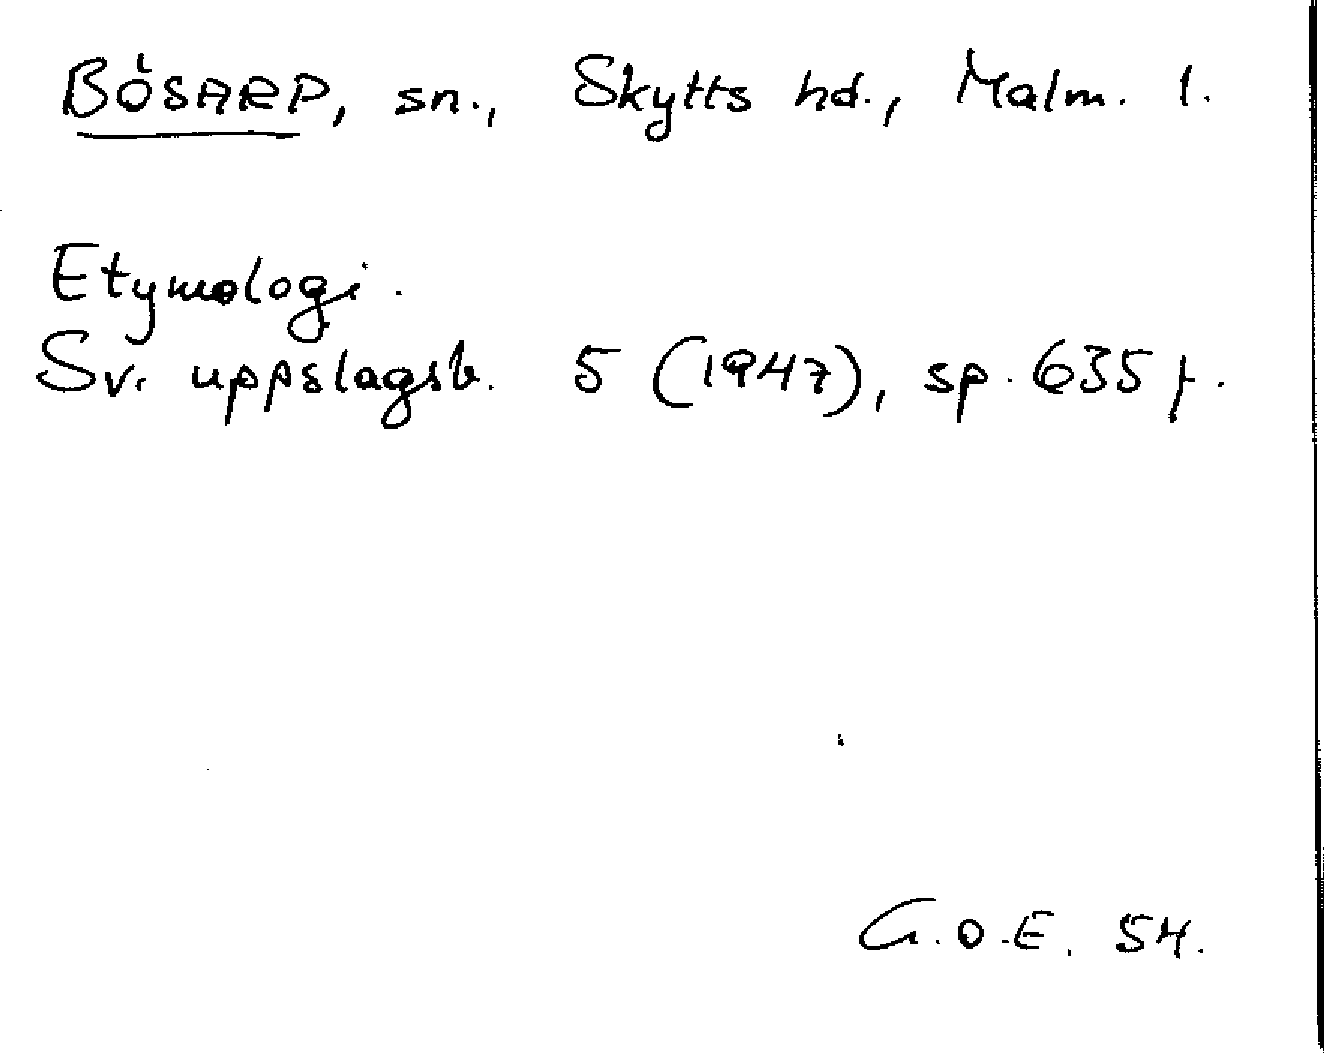 BÖSARP, sn., Skytts hd., Malm. l.
Etymologi.
Sv. uppslagsb. 5 (1947), sp. 635 f.
G.O.E. 54.